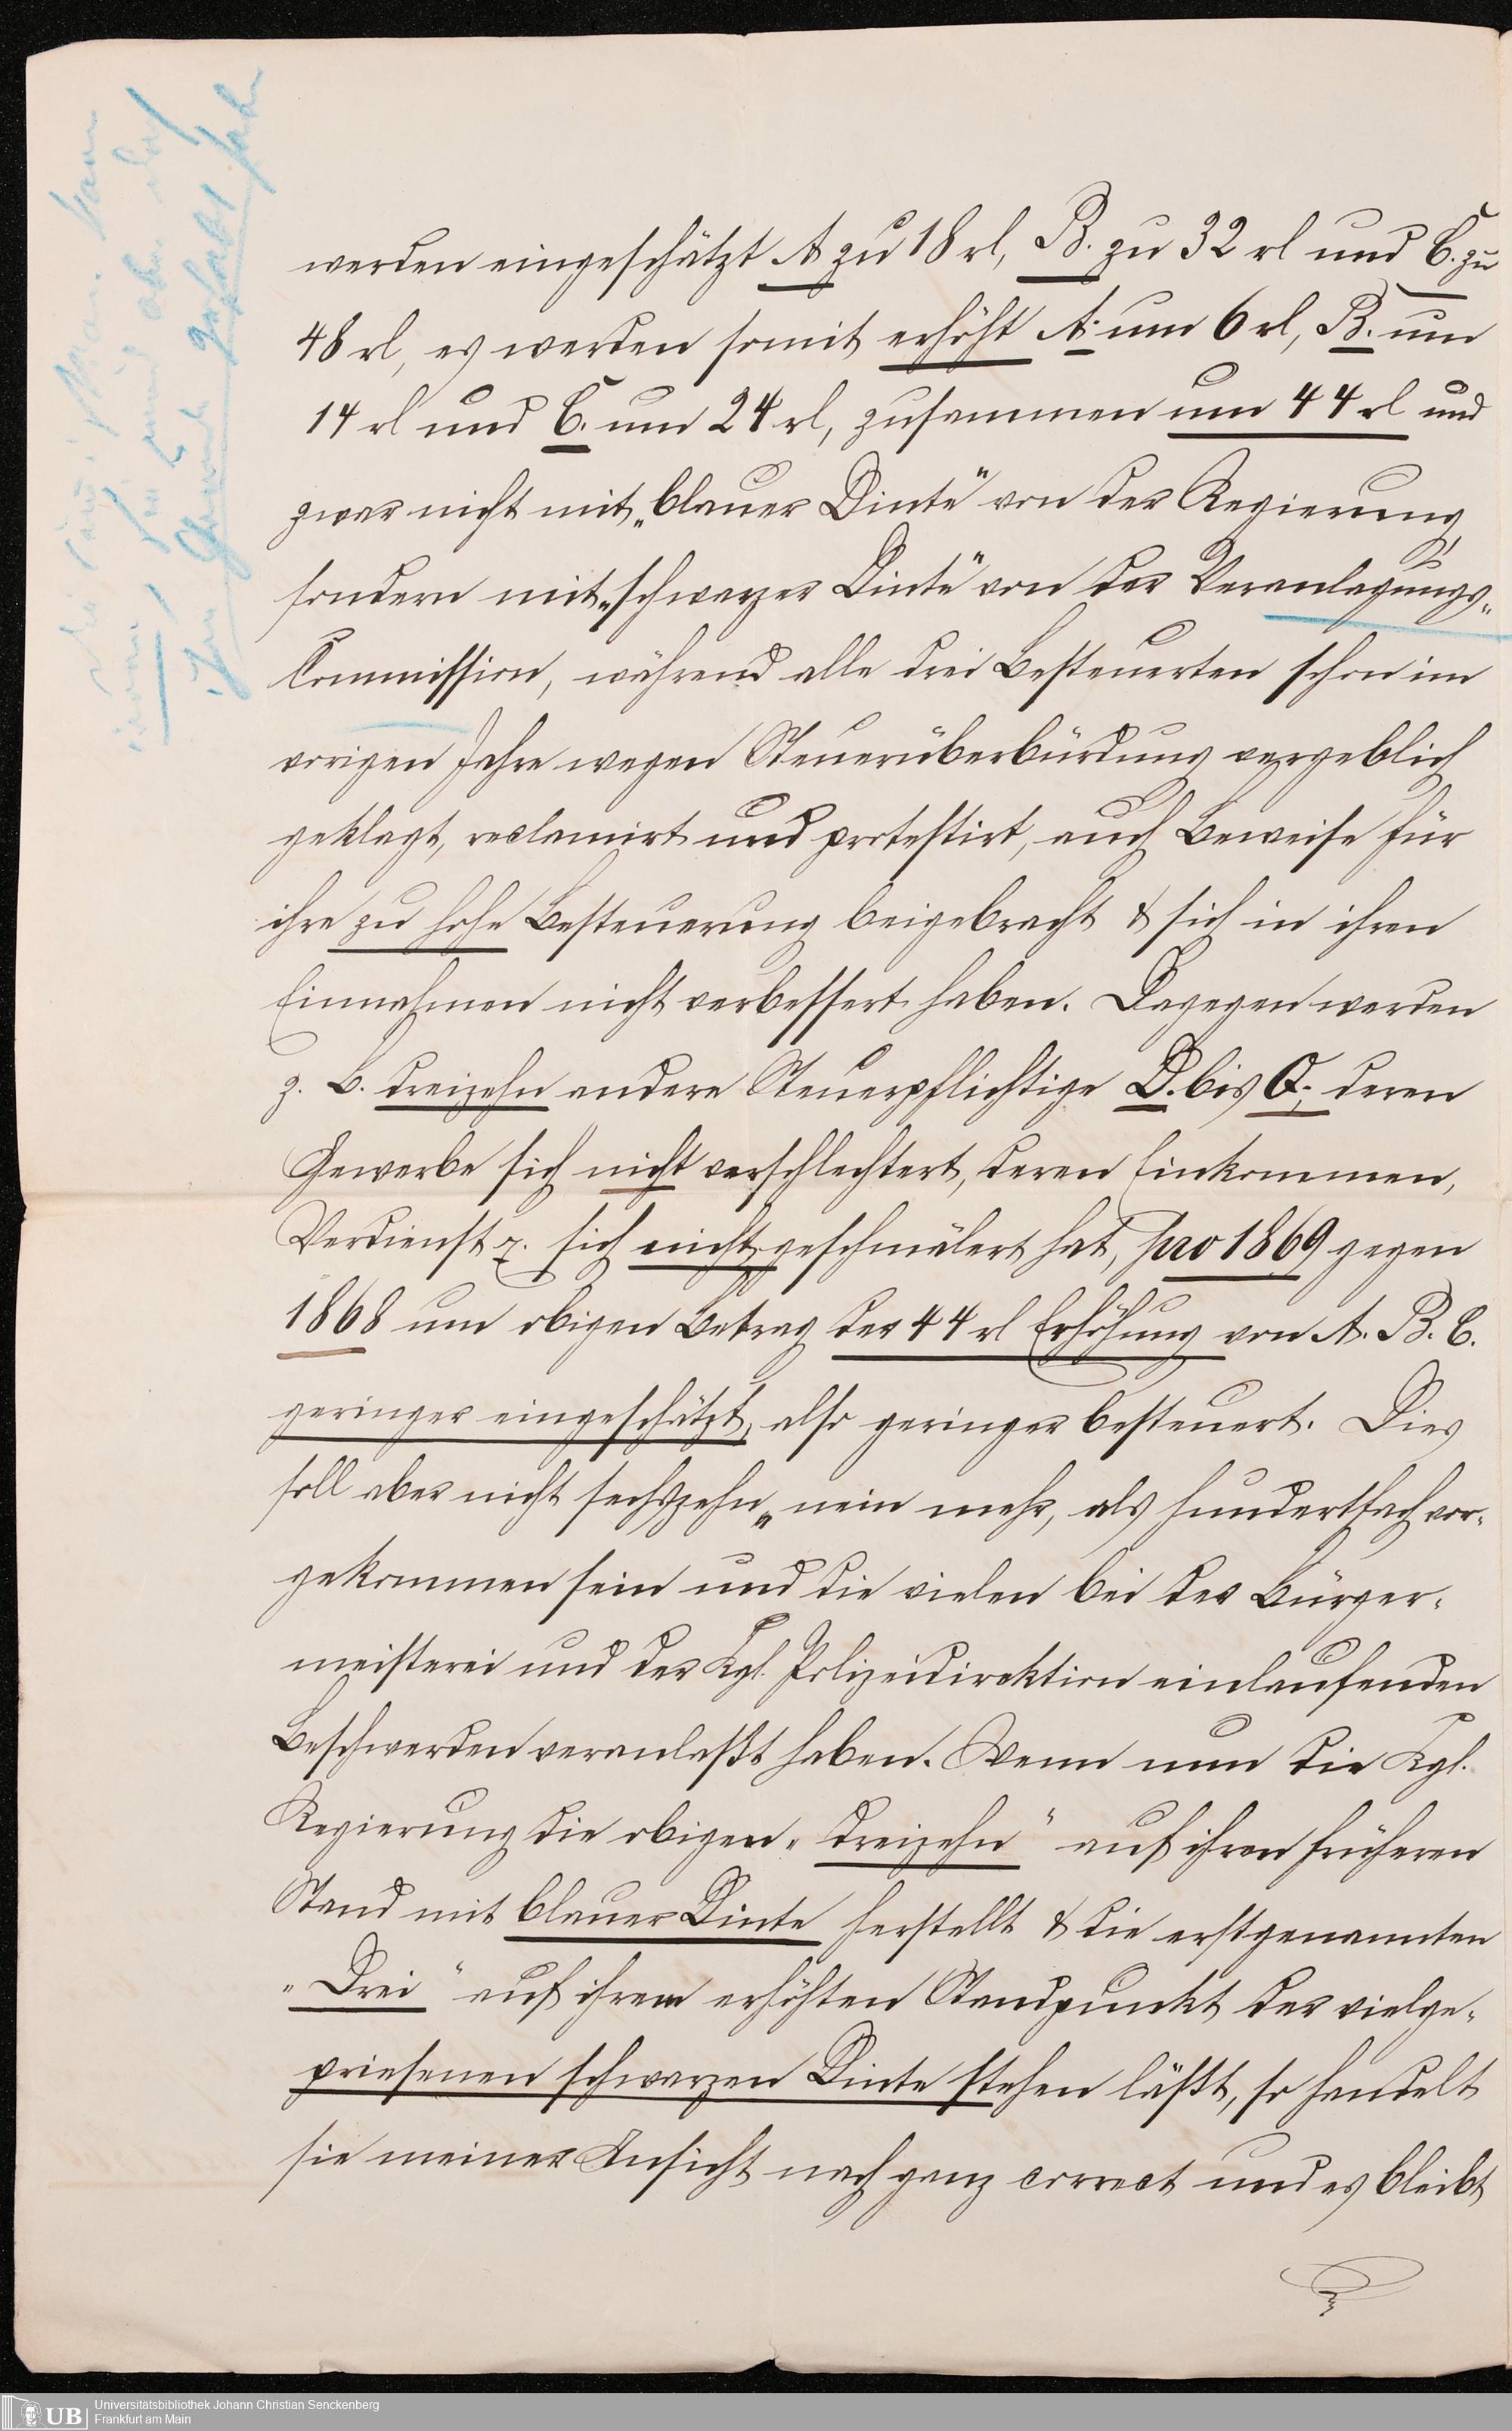 werden eingeschätzt A zu 18 rl, B. zu 32 rl und C. zu
48 rl, es werden somit erhöht A. um 6 rl, B. um
14 rl und C. um 24 rl, zusammen um 44 rl und
zwar nicht mit „blauer Dinte" von der Regierung,
sondern mit „schwarzer Dinte" von der Veranlagungs-
Commission, während alle drei Besteuerten schon im
vorigen Jahre wegen Steuerüberbürdung vergeblich
geklagt, reclamirt und protestirt, auch Beweise für
ihre zu hohe Besteuerung beigebracht & sich in ihren
Einnahmen nicht verbessert haben. Dagegen werden
z. B. dreizehn andere Steuerpflichtige D. bis Q., deren
Gewerbe sich nicht verschlechtert, deren Einkommen,
Verdienst . sich nicht geschmälert hat, pro 1869 gegen
1868 um obigen Betrag der 44 rl Erhöhung von A. B. C.
geringer eingeschätzt, also geringer besteuert. Dies
soll aber nicht sechszehn „ nein mehr, als hundertfach vor-
gekommen sein und die vielen bei der Bürger-
meisterei und der Kgl. Polizeidirektion einlaufenden
Beschwerden veranlaßt haben. Wenn nun die Kgl.
Regierung die obigen „dreizehn" auf ihren früheren
Stand mit blauer Dinte herstellt & die erstgenannten
„Drei" auf ihrem erhöhten Standpunkt der vielge-
priesenen schwarzen Dinte stehen läßt, so handelt
sie meiner Ansicht nach ganz correct und es bleibt
UB Universitätsbibliothek Johann Christian Senckenberg
Frankfurt am Main